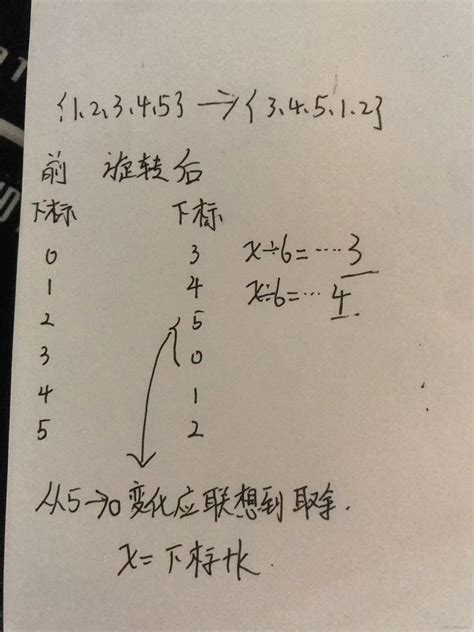 {1、2、3、4、5} → { 3、4、5、1、2}
前 旋转 后
下标 下标
0 3 x÷6=····3
1 4 x÷6=···4
2 5
3 0
4 1
5 2
从5→0变化应联想到取余.
x=下标+k.